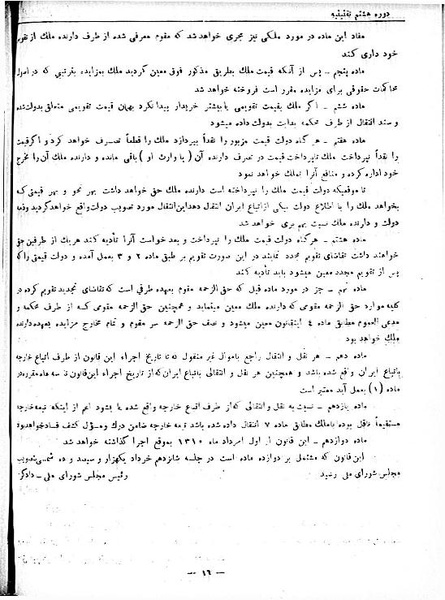 دوره هشتم تقنینیه
مفاد این ماده در مورد ملکی نیز مجری خواهد شد که مقوم معرفی شده از طرف دارنده ملک از تقویم
خود داری کند
ماده پنجم - پس از آنکه قیمت ملک بطریق مذکور فوق معین گردید ملک بمزایده بترتیبی که در اصول
محاکمات حقوقی برای مزایده مقرر است فروخته خواهد شد
ماده ششم - اگر ملک بقیمت تقویمی یا بیشتر خریدار پیدا نکرد بهمان قیمت تقویمی متعلق بدولت شده
و سند انتقال از طرف محکمه بدایت بدولت داده میشود
ماده هفتم - هر گاه دولت قیمت مزبور را نقداً بپردازد ملک را قطعاً تصرف خواهد کرد و اگر قیمت
را نقداً نپرداخت ملک تا پرداخت قیمت در تصرف دارنده آن (یا وراث او) باقی مانده و دارنده ملک آن را بخرج
خود اداره کرده و منافع آنرا تملک خواهد نمود
تا موقعیکه دولت قیمت ملک را نپرداخته است دارنده ملک حق خواهد داشت بهر نحو و بهر قیمتی که
بخواهد ملک را با اطلاع دولت بیکی از اتباع ایران انتقال دهد این انتقال مورد تصویب دولت واقع خواهد گردید و ذمه
دولت و دارنده ملک نسبت بهم بری خواهد شد
ماده هشتم - هر گاه دولت قیمت ملک را نپرداخت و بعد خواست آنرا تأدیه کند هر یک از طرفین حق
خواهند داشت تقاضای تقویم مجدد نمایند در این صورت تقویم بر طبق ماده ۲ و ۳ بعمل آمده و دولت قیمتی را که
پس از تقویم مجدد معین میشود باید تأدیه کند
ماده نهم - جز در مورد ماده قبل که حق الزحمه مقوم بعهده طرفی است که تقاضای تجدید تقویم کرده در
کلیه موارد حق الزحمه مقومی که دارنده ملک معین مینماید و همچنین حق الزحمه مقومی که از طرف محکمه و
مدعی العموم مطابق ماده ٤ این قانون معین میشود و نصف حق الزحمه سر مقوم و تمام مخارج مزایده بعهده دارنده
ملک خواهد بود
ماده دهم - هر نقل و انتقال راجع باموال غیر منقول که تا تاریخ اجراء این قانون از طرف اتباع خارجه
باتباع ایران واقع شده باشد و همچنین هر نقل و انتقالی باتباع ایران که از تاریخ اجراء این قانون تا سه ماه مقرره در
ماده (۱) بعمل آید معتبر است
ماده یازدهم - نسبت به نقل و انتقالی که از طرف اتباع خارجه واقع شده یا بشود اعم از اینکه تبعه خارجه
مستقیماً ناقل بوده یا ملک مطابق ماده ۷ انتقال داده شده باشد تبعه خارجه ضامن درک و مسؤل کشف فساد خواهد بود
ماده دوازدهم - این قانون از اول امرداد ماه ۱۳۱۰ بموقع اجرا گذاشته خواهد شد
این قانون که مشتمل بر دوازده ماده است در جلسه شانزدهم خرداد یکهزار و سیصد و ده شمسی بتصویب
مجلس شورای ملی رسید رئیس مجلس شورای ملی - دادگر
— ١٦ —